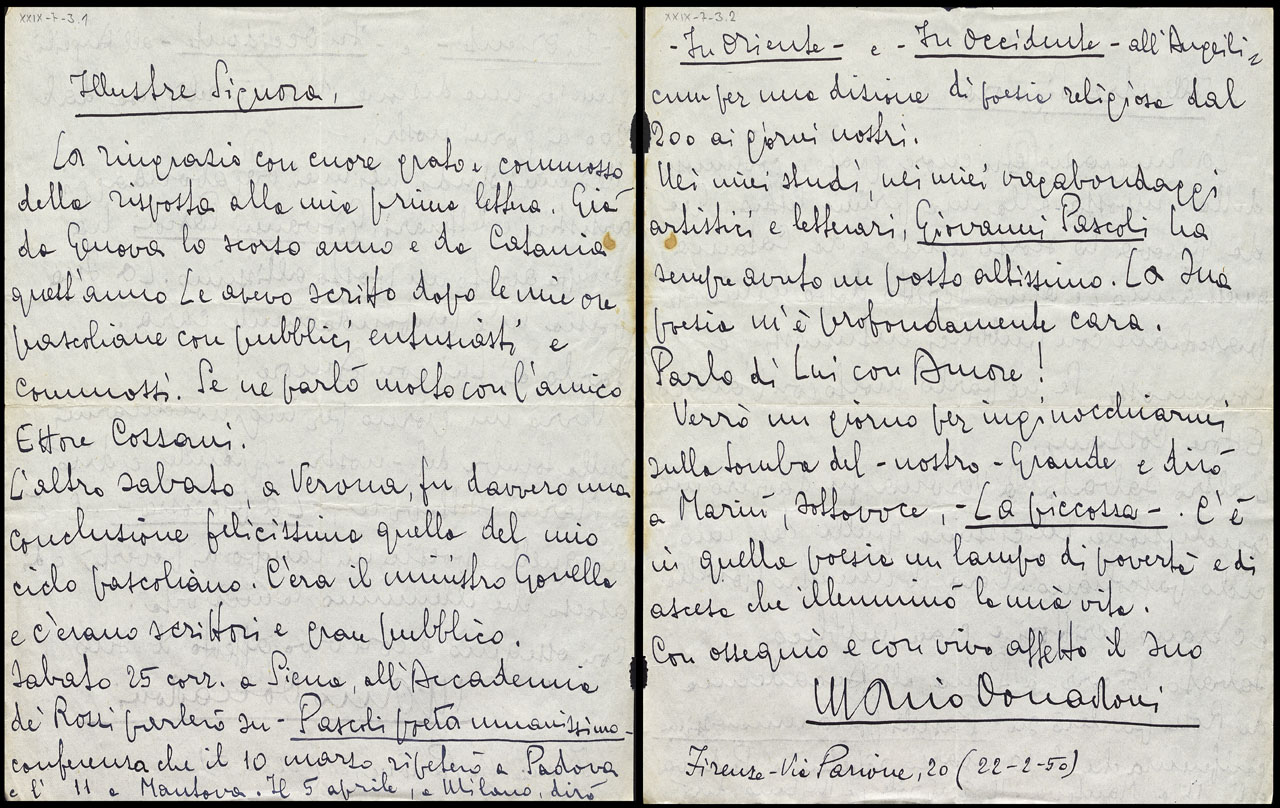 XXIX-7-3.1
Illustre Signora,
La ringrazio con cuore grato e commosso
della risposta alla mia prima lettera. Già
da Genova lo scorso anno e da Catania
quest'anno Le avevo scritto dopo le mie ore
pascoliane con pubblici entusiasti e
commossi. Se ne parlò molto con l'amico
Ettore Cozzani.
L'altro sabato, a Verona, fu davvero una
conclusione felicissima quella del mio
ciclo pascoliano. C'era il ministro Gonella
e c'erano scrittori e gran pubblico.
Sabato 25 corr. a Siena, all'Accademia
de' Rozzi parlerò su - Pascoli poeta umanissimo -
conferenza che il 10 marzo ripeterò a Padova
e l' 11 a Mantova. Il 5 aprile, a Milano, dirò
XXIX-7-3.2
- In Oriente - e - In Occidente - all'Angeli=
cum per una dizione di poesia religiosa dal
200 ai giorni nostri.
Nei miei studi, nei miei vagabondaggi
artistici e letterari, Giovanni Pascoli ha
sempre avuto un posto altissimo. La Sua
poesia m'è profondamente cara.
Parlo di Lui con Amore!
Verrò un giorno per inginocchiarmi
sulla tomba del - nostro - Grande e dirò
a Mariù, sottovoce, - La piccozza - . C'è
in quella poesia un lampo di povertà e di
ascesa che illuminò la mia vita.
Con ossequio e con vivo affetto il Suo
Mario Donadoni
Firenze - Via Parione, 20 (22-2-50)